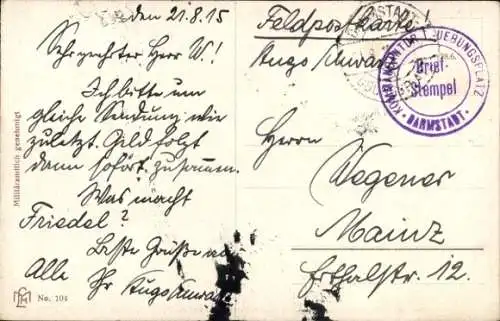 den 21.8.15
Sehr geehrter Herr W!
Ich bitte um
gleiche Sendung wie
zuletzt. Geld folgt
dann sofort zusammen.
Was macht
Friedel?
Beste Grüße an
Alle Ihr Hugo
Militäramtlich genehmigt
No. 104
Feldpostkarte
Hugo
KOMMANDANTUR
Brief-
Stempel
DARMSTADT
Herrn
Wegener
Mainz
Erthalstr. 12.